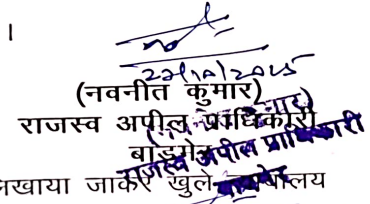 ।
22/10/2025
(नवनीत कुमार)
राजस्व अपील प्राधिकारी
बाड़मेर
राजस्व अपील प्राधिकारी
बाड़मेर
लिखाया जाकर खुले न्यायालय